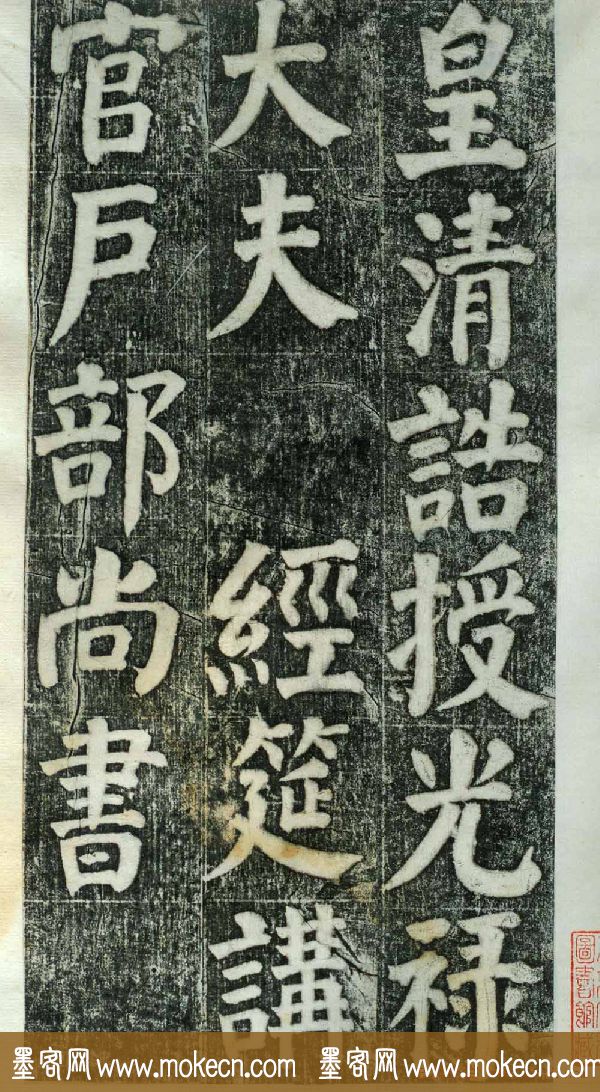 皇清誥授光祿
大夫 經筵講
官戶部尚書
墨客网 www.mokecn.com 墨客网 www.mokecn.com